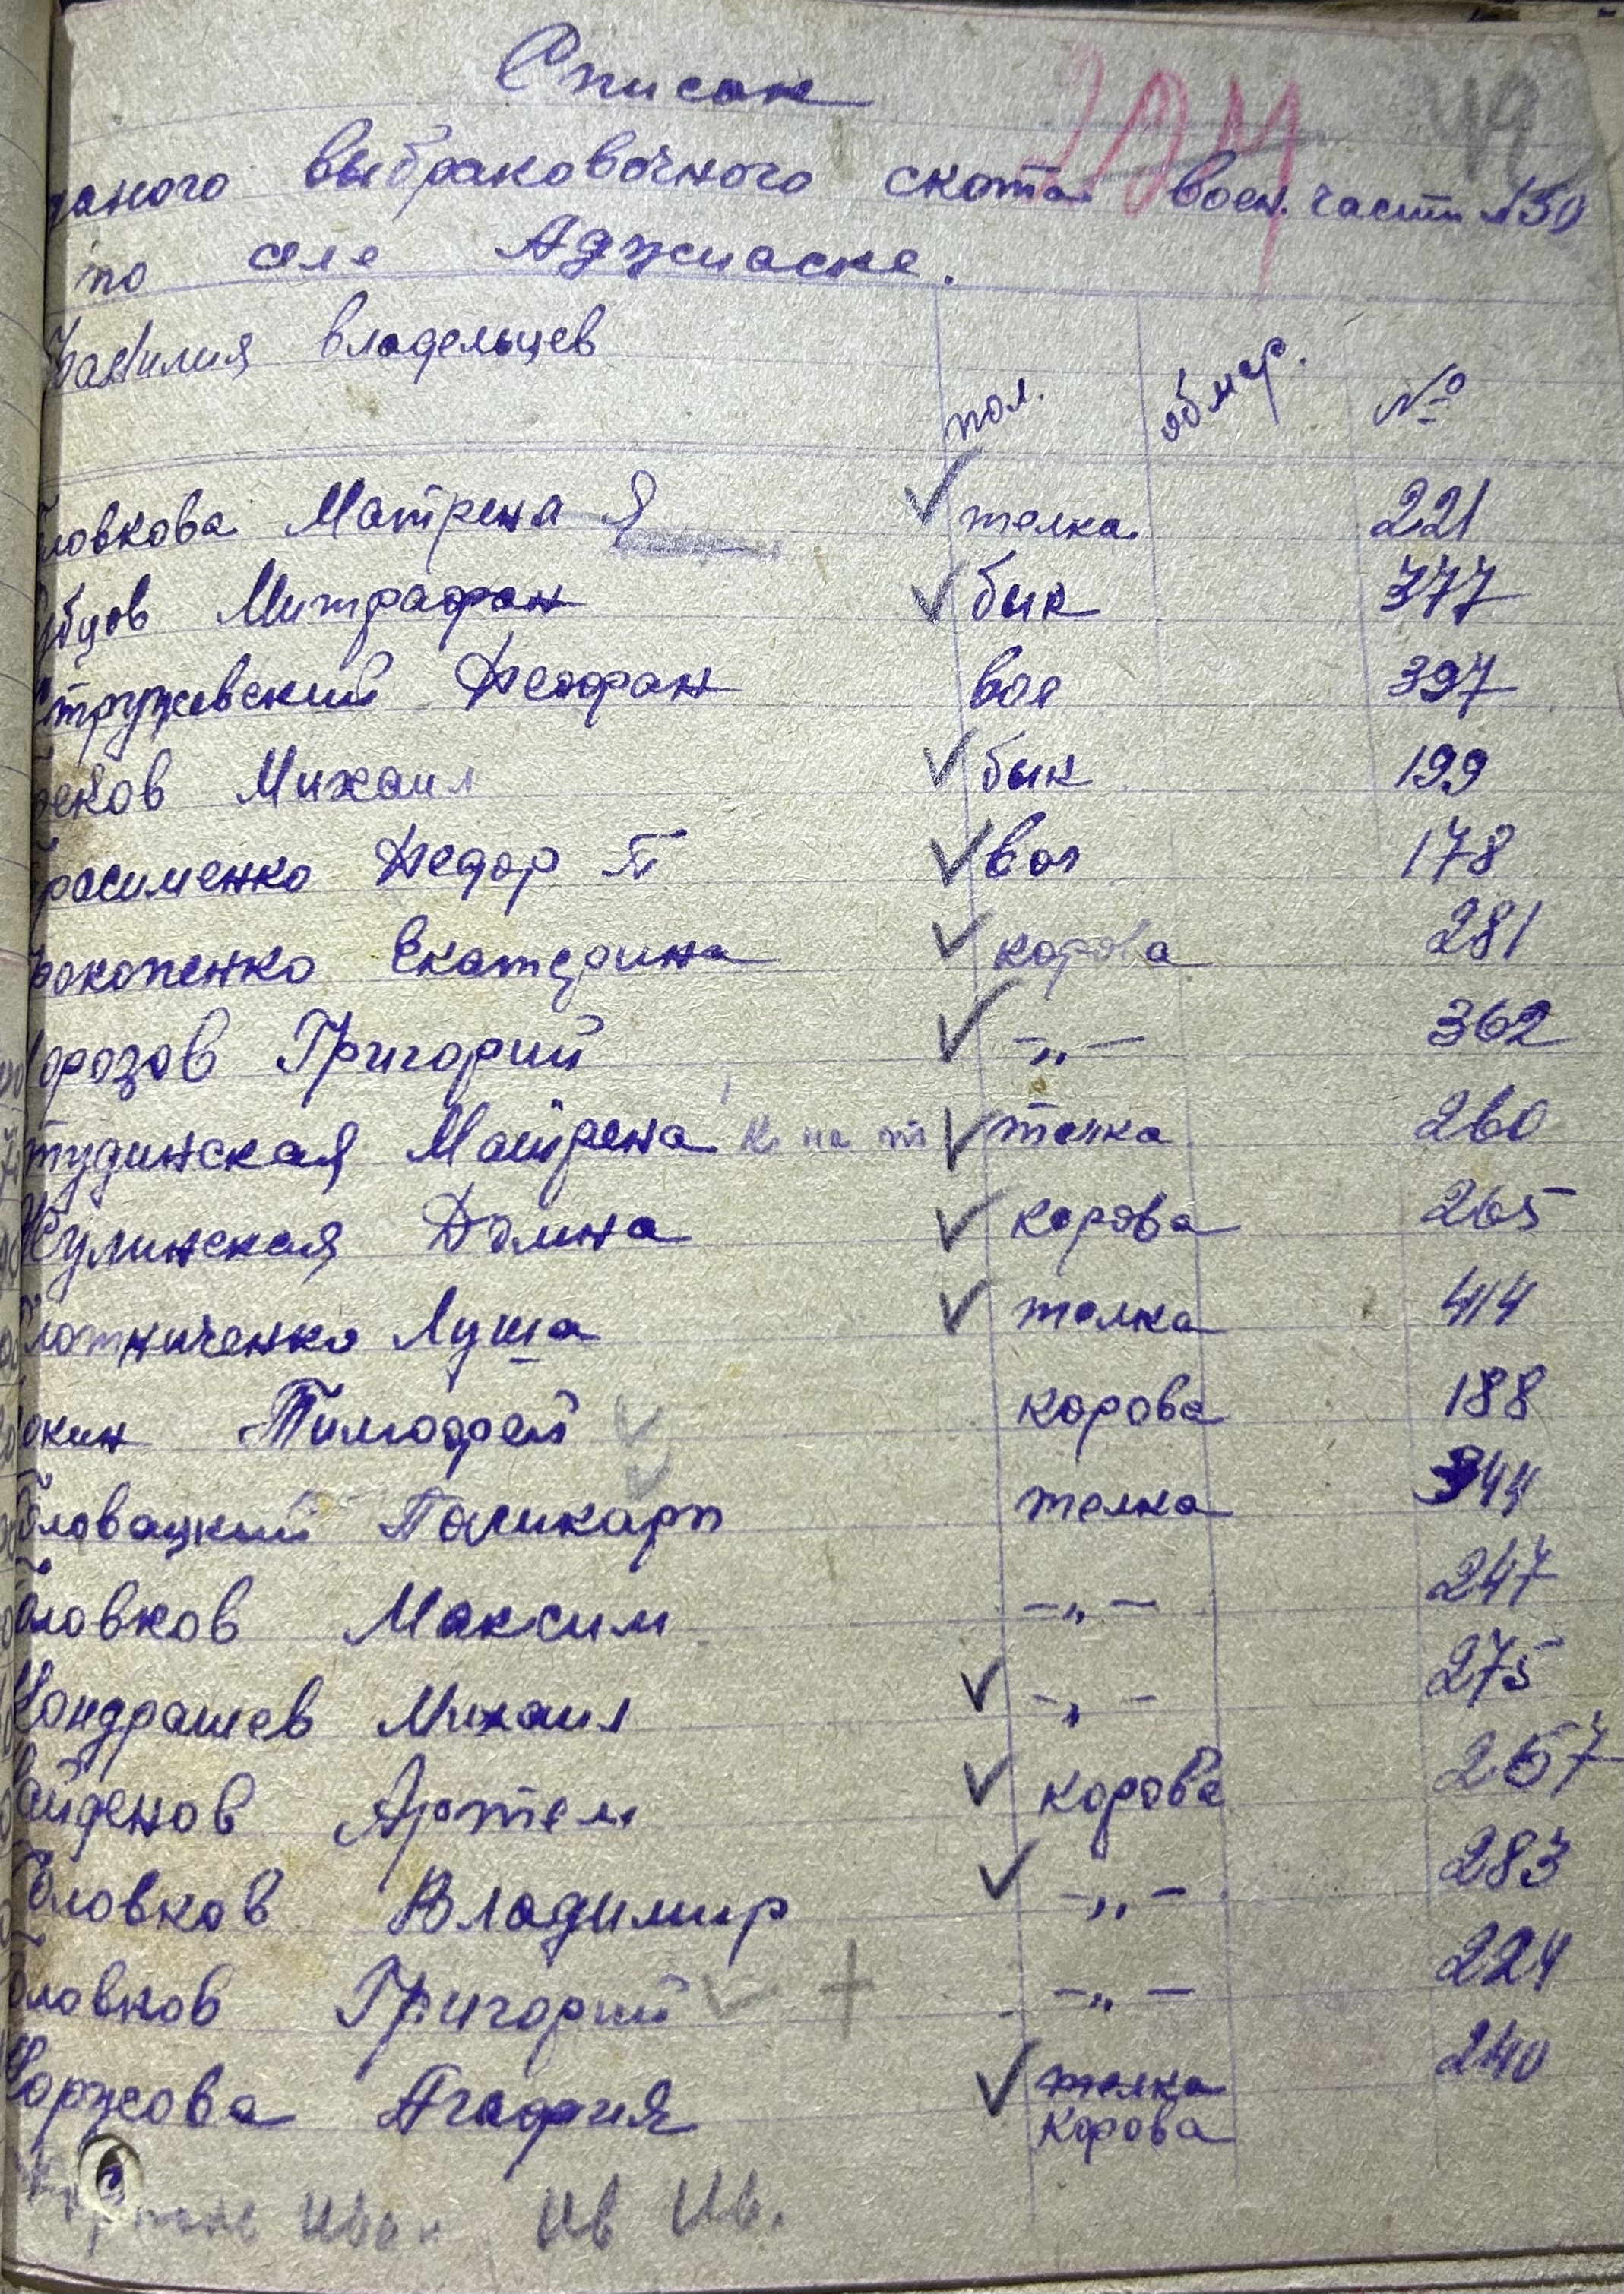 Список
2ДМ 42
даного выбраковочного скота воен. части №150
по селе Аджиаске.
Фамилия владельцев пол. обмер. №
ловкова Матрена Я ✓ телка 221
убцов Митрафан ✓ бык 377
Стружевский Феофан вол 397
реков Михаил ✓ бык 199
расименко Федор П ✓ вол 178
рокопенко Екатерина ✓ корова 281
орозов Григорий ✓ -„- 362
тудинская Матрена на ✓ телка 260
Жулинская Домна ✓ корова 265
лотниченко Луша ✓ телка 414
окин Тимофей ✓ корова 188
Головацкий Поликарп ✓ телка 344
оловков Максим -„- 247
Кондрашев Михаил ✓ -„- 275
айденов Артем ✓ корова 267
Головков Владимир ✓ -„- 283
оловков Григорий ✓ + -„- 224
Коржова Агафия ✓ телка 240
корова
Иван Ив Ив.